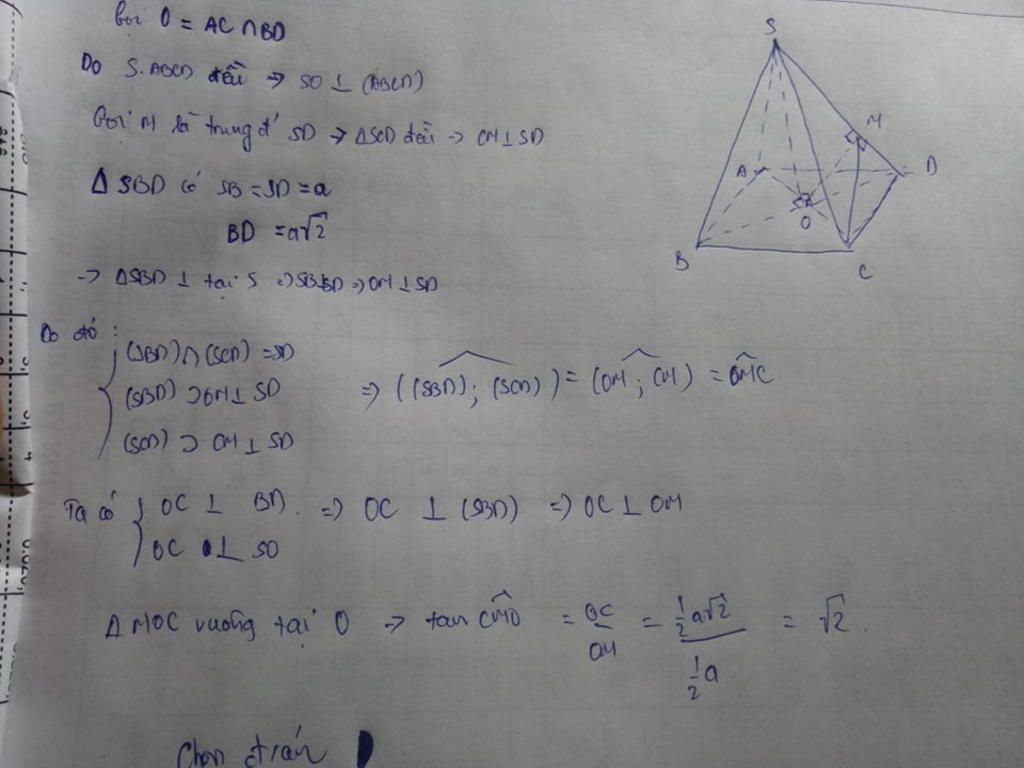 Gọi O = AC ∩ BD
Do S.ABCD đều ⇒ SO ⊥ (ABCD)
Gọi M là trung đ' SD → ΔSCD đều → CM ⊥ SD
Δ SBD có SB = SD = a
BD = a√2
→ ΔSBD ⊥ tại S ⇒ SB⊥SD ⇒ OM ⊥ SD
Do đó :
(SBD) ∩ (SCD) = SD
(SBD) ⊃ OM ⊥ SD ⇒ ((SBD) ; (SCD)) = (OM ; CM) = OMC
(SCD) ⊃ CM ⊥ SD
Ta có { OC ⊥ BD. ⇒ OC ⊥ (SBD) ⇒ OC ⊥ OM
OC ⊥ SO
Δ MOC vuông tại O → tan CMO = OC/OM = (1/2 a√2)/(1/2 a) = √2.
Chọn đ.án D
S
M
A
D
O
B
C